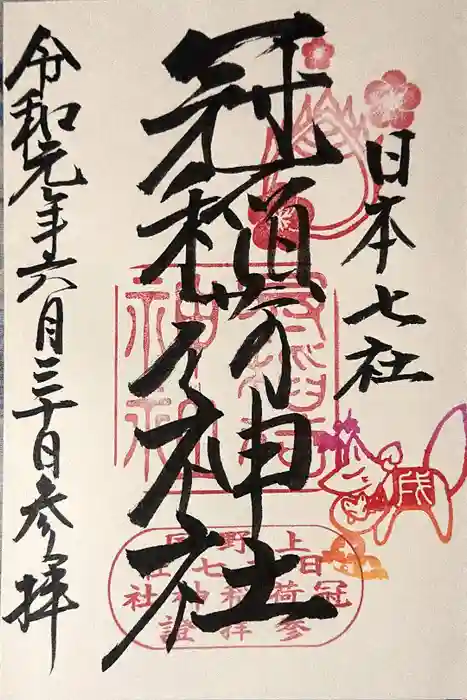 日本七社
冠稲荷神社
令和元年六月三十日参拝
冠稲荷
神社
上野国
日本七社
冠稲荷神社
参拝證
戌